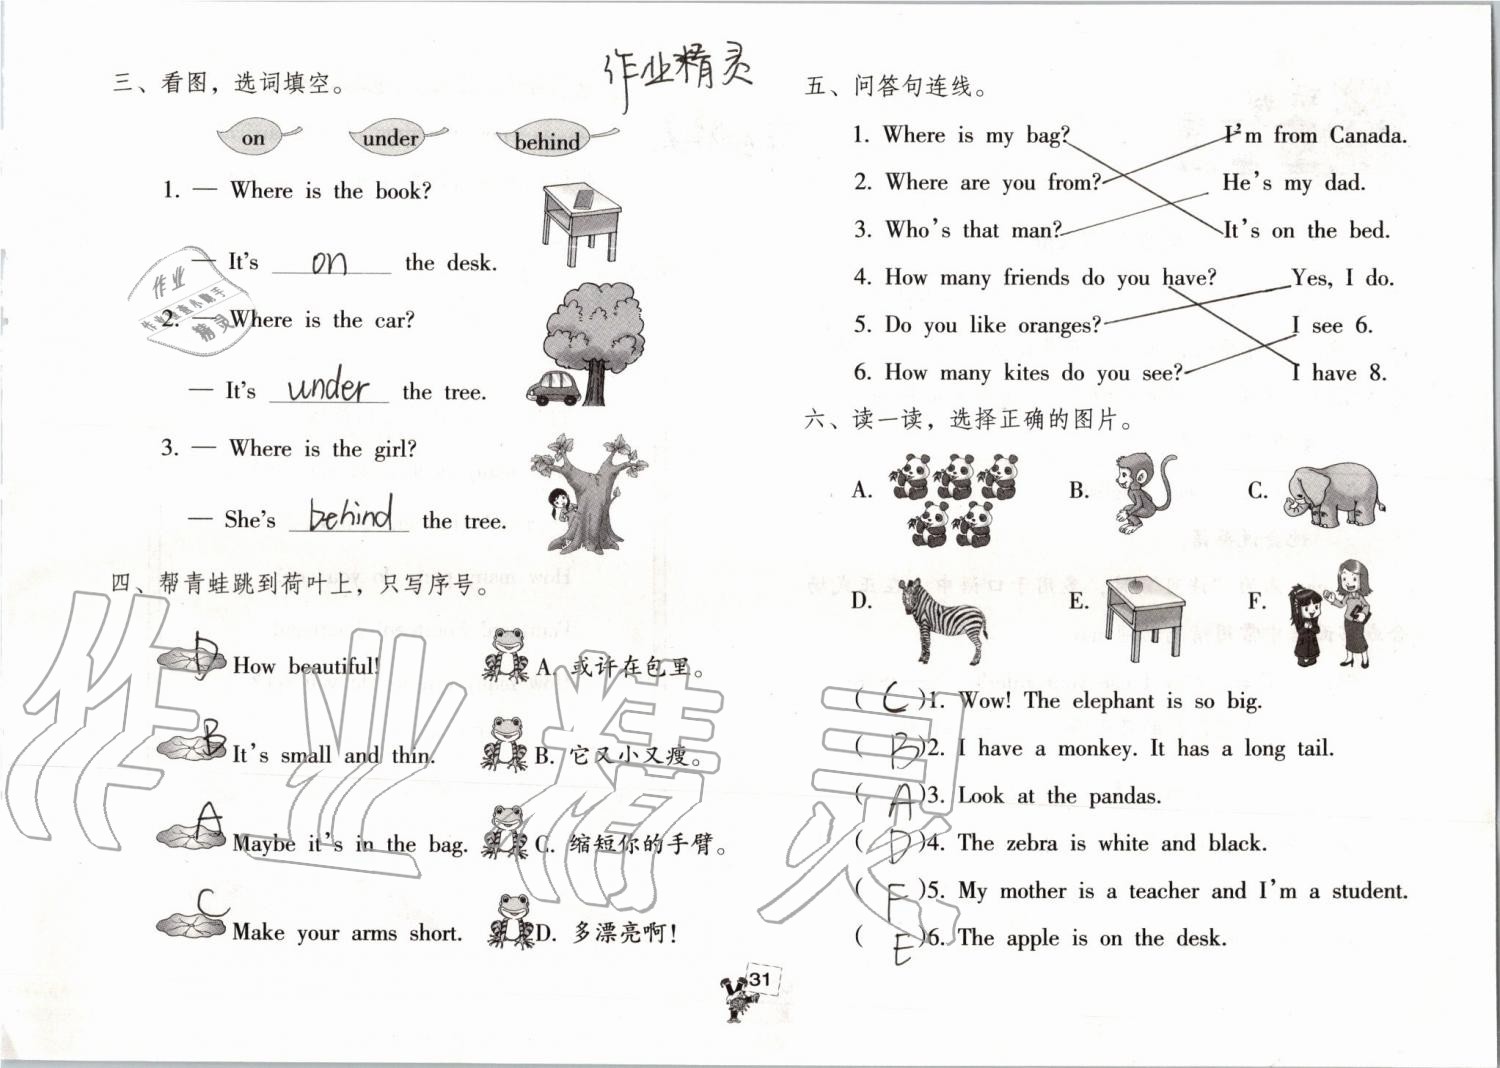 作业精灵
三、看图，选词填空。
on under behind
1. — Where is the book?
— It's on the desk.
2. — Where is the car?
— It's under the tree.
3. — Where is the girl?
— She's behind the tree.
四、帮青蛙跳到荷叶上，只写序号。
D How beautiful! A. 或许在包里。
B It's small and thin. B. 它又小又瘦。
A Maybe it's in the bag. C. 缩短你的手臂。
C Make your arms short. D. 多漂亮啊！
五、问答句连线。
1. Where is my bag? I'm from Canada.
2. Where are you from? He's my dad.
3. Who's that man? It's on the bed.
4. How many friends do you have? Yes, I do.
5. Do you like oranges? I see 6.
6. How many kites do you see? I have 8.
六、读一读，选择正确的图片。
A. B. C.
D. E. F.
( C )1. Wow! The elephant is so big.
( B )2. I have a monkey. It has a long tail.
( A )3. Look at the pandas.
( D )4. The zebra is white and black.
( F )5. My mother is a teacher and I'm a student.
( E )6. The apple is on the desk.
31
作业
精灵
作业精灵